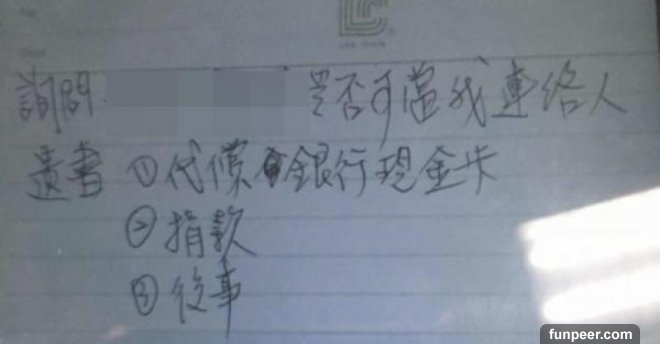 詢問 是否可當我連絡人
遺書 ①代償銀行現金卡
②捐款
③後事
funpeer.com